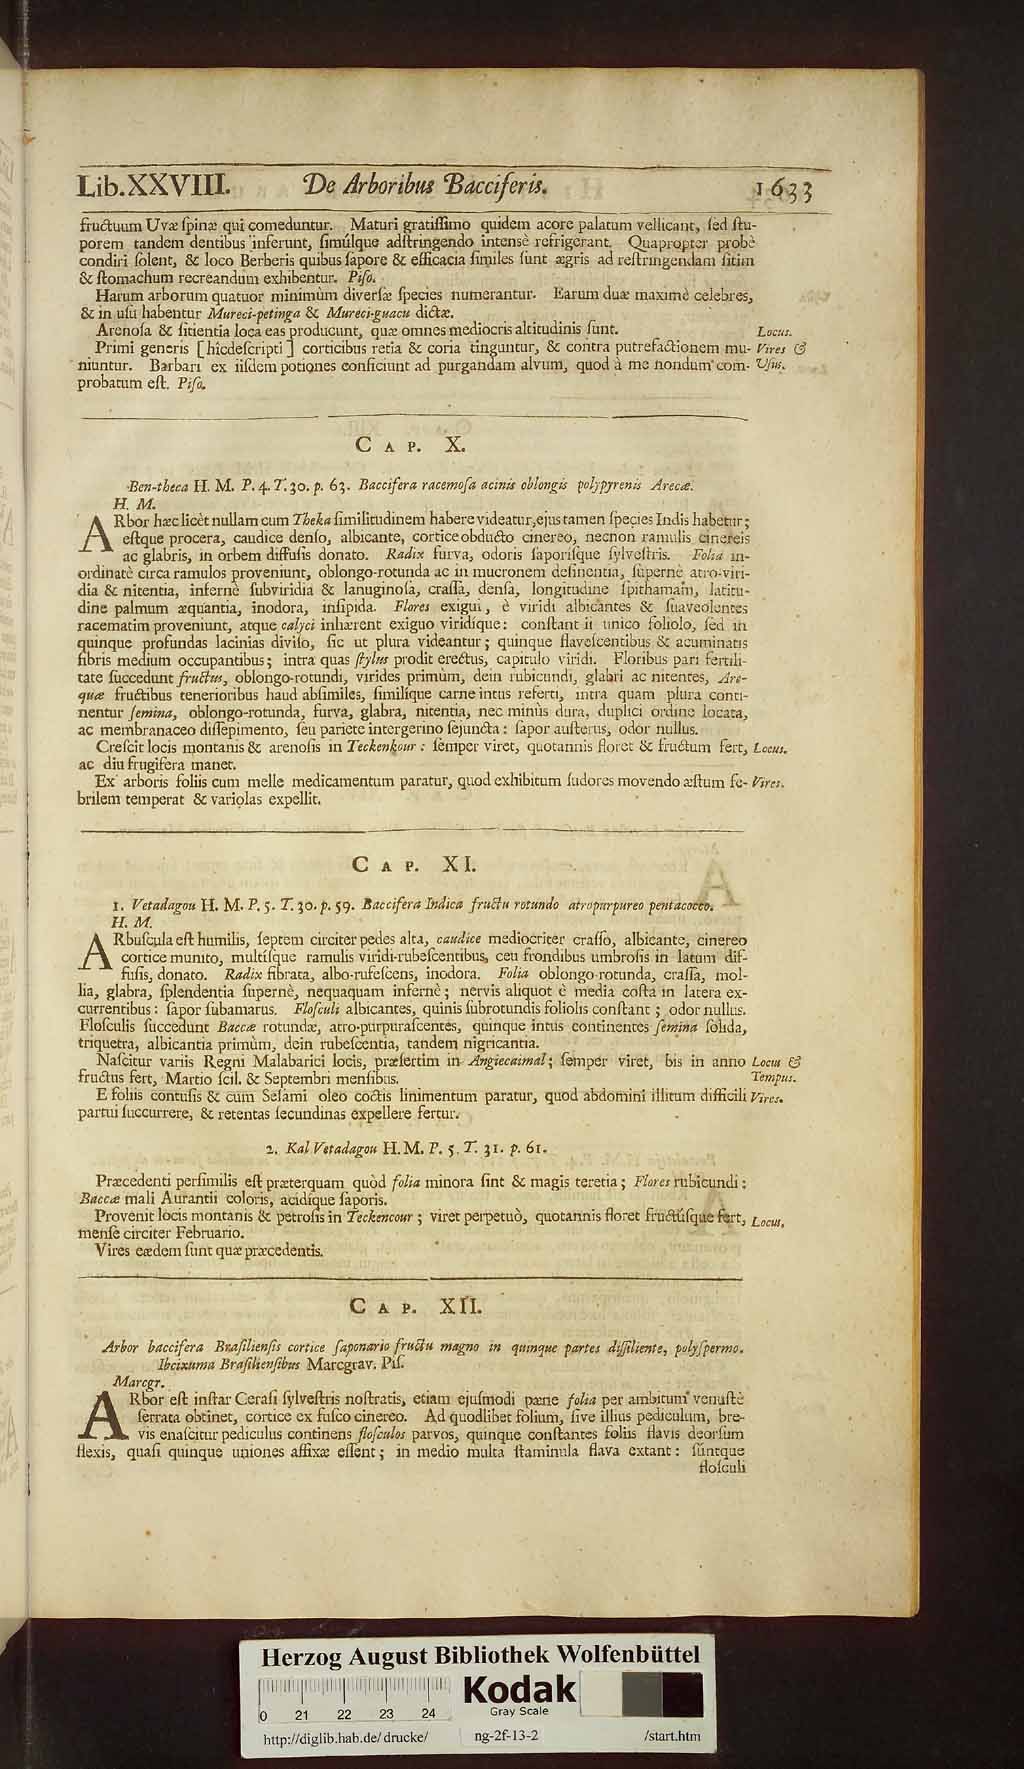 Lib.XXVIII. De Arboribus Bacciferis. 1633
fructuum Uvæ ſpinæ qui comeduntur. Maturi gratiſſimo quidem acore palatum vellicant, ſed ſtu-
porem tandem dentibus inferunt, ſimúlque adſtringendo intensè refrigerant. Quapropter probè
condiri ſolent, & loco Berberis quibus ſapore & efficacia ſimiles ſunt ægris ad reſtringendam ſitim
& ſtomachum recreandum exhibentur. Piſo.
Harum arborum quatuor minimùm diverſæ ſpecies numerantur. Earum duæ maximè celebres,
& in uſu habentur Mureci-petinga & Mureci-guacu dictæ.
Arenoſa & ſitientia loca eas producunt, quæ omnes mediocris altitudinis ſunt. Locus.
Primi generis [hic deſcripti] corticibus retia & coria tinguntur, & contra putrefactionem mu- Vires &
niuntur. Barbari ex iiſdem potiones conficiunt ad purgandam alvum, quod à me nondum com- Uſus.
probatum eſt. Piſo.
CAP. X.
Ben-theca H. M. P. 4. T. 30. p. 63. Baccifera racemoſa acinis oblongis polypyrenis Arecæ.
H. M.
ARbor hæc licèt nullam cum Theka ſimilitudinem habere videatur, ejus tamen ſpecies Indis habetur;
eſtque procera, caudice denſo, albicante, cortice obducto cinereo, necnon ramulis cinereis
ac glabris, in orbem diffuſis donato. Radix furva, odoris ſaporiſque ſylveſtris. Folia in-
ordinatè circa ramulos proveniunt, oblongo-rotunda ac in mucronem deſinentia, ſupernè atro-viri-
dia & nitentia, infernè ſubviridia & lanuginoſa, craſſa, denſa, longitudine ſpithamam, latitu-
dine palmum æquantia, inodora, inſipida. Flores exigui, è viridi albicantes & ſuaveolentes
racematim proveniunt, atque calyci inhærent exiguo viridique: conſtant ii unico foliolo, ſed in
quinque profundas lacinias diviſo, ſic ut plura videantur; quinque flaveſcentibus & acuminatis
fibris medium occupantibus; intra quas ſtylus prodit erectus, capitulo viridi. Floribus pari fertili-
tate ſuccedunt fructus, oblongo-rotundi, virides primùm, dein rubicundi, glabri ac nitentes, Are-
quæ fructibus tenerioribus haud abſimiles, ſimilique carne intus referti, intra quam plura conti-
nentur ſemina, oblongo-rotunda, furva, glabra, nitentia, nec minùs dura, duplici ordine locata,
ac membranaceo diſſepimento, ſeu pariete intergerino ſejuncta: ſapor auſterus, odor nullus.
Creſcit locis montanis & arenoſis in Teckenkour: ſemper viret, quotannis floret & fructum fert, Locus.
ac diu frugifera manet.
Ex arboris foliis cum melle medicamentum paratur, quod exhibitum ſudores movendo æſtum fe- Vires.
brilem temperat & variolas expellit.
CAP. XI.
1. Vetadagou H. M. P. 5. T. 30. p. 59. Baccifera Indica fructu rotundo atropurpureo pentacocco.
H. M.
ARbuſcula eſt humilis, ſeptem circiter pedes alta, caudice mediocriter craſſo, albicante, cinereo
cortice munito, multiſque ramulis viridi-rubeſcentibus, ceu frondibus umbroſis in latum dif-
fuſis, donato. Radix fibrata, albo-rufeſcens, inodora. Folia oblongo-rotunda, craſſa, mol-
lia, glabra, ſplendentia ſupernè, nequaquam infernè; nervis aliquot è media coſta in latera ex-
currentibus: ſapor ſubamarus. Floſculi albicantes, quinis ſubrotundis foliolis conſtant; odor nullus.
Floſculis ſuccedunt Baccæ rotundæ, atro-purpuraſcentes, quinque intus continentes ſemina ſolida,
triquetra, albicantia primùm, dein rubeſcentia, tandem nigricantia.
Naſcitur variis Regni Malabarici locis, præſertim in Angiecaimal; ſemper viret, bis in anno Locus &
fructus fert, Martio ſcil. & Septembri menſibus. Tempus.
E foliis contuſis & cum Seſami oleo coctis linimentum paratur, quod abdomini illitum difficili Vires.
partui ſuccurrere, & retentas ſecundinas expellere fertur.
2. Kal Vetadagou H. M. P. 5. T. 31. p. 61.
Præcedenti perſimilis eſt præterquam quòd folia minora ſint & magis teretia; Flores rubicundi:
Baccæ mali Aurantii coloris, acidique ſaporis.
Provenit locis montanis & petroſis in Teckencour; viret perpetuò, quotannis floret fructúſque fert, Locus.
menſe circiter Februario.
Vires eædem ſunt quæ præcedentis.
CAP. XII.
Arbor baccifera Braſilienſis cortice ſaponario fructu magno in quinque partes diſſiliente, polyſpermo.
Ibcixuma Braſilienſibus Marcgrav. Piſ.
Marcgr.
ARbor eſt inſtar Ceraſi ſylveſtris noſtratis, etiam ejuſmodi pæne folia per ambitum venuſtè
ſerrata obtinet, cortice ex fuſco cinereo. Ad quodlibet folium, ſive illius pediculum, bre-
vis enaſcitur pediculus continens floſculos parvos, quinque conſtantes foliis flavis deorſum
flexis, quaſi quinque uniones affixæ eſſent; in medio multa ſtaminula flava extant: ſúntque
floſculi
Herzog August Bibliothek Wolfenbüttel
Kodak
Gray Scale
0 21 22 23 24
http://diglib.hab.de/drucke/ ng-2f-13-2 /start.htm